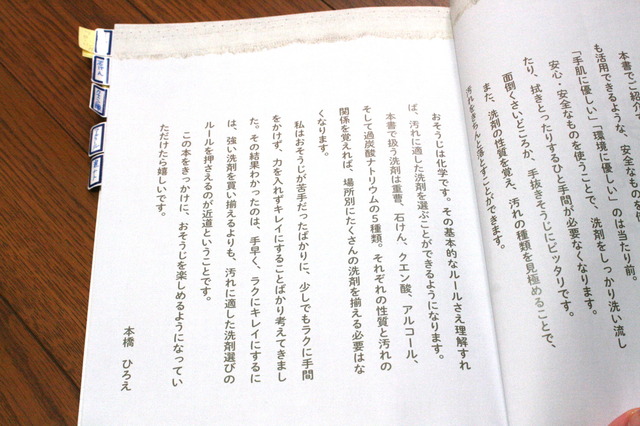 本書でご紹介
も活用できるような、安全なものを使
「手肌に優しい」「環境に優しい」のは当たり前。
安心・安全なものを使うことで、洗剤をしっかり洗い流し
たり、拭きとったりするひと手間が必要なくなります。
面倒くさいどころか、手抜きそうじにピッタリです。
また、洗剤の性質を覚え、汚れの種類を見極めることで、
汚れをきちんと落とすことができます。
おそうじは化学です。その基本的なルールさえ理解すれ
ば、汚れに適した洗剤を選ぶことができるようになります。
本書で扱う洗剤は重曹、石けん、クエン酸、アルコール、
そして過炭酸ナトリウムの5種類。それぞれの性質と汚れの
関係を覚えれば、場所別にたくさんの洗剤を揃える必要はな
くなります。
私はおそうじが苦手だったばかりに、少しでもラクに手間
をかけず、力を入れずキレイにすることばかり考えてきまし
た。その結果わかったのは、手早く、ラクにキレイにするに
は、強い洗剤を買い揃えるよりも、汚れに適した洗剤選びの
ルールを押さえるのが近道ということです。
この本をきっかけに、おそうじを楽しめるようになってい
ただけたら嬉しいです。
本橋 ひろえ